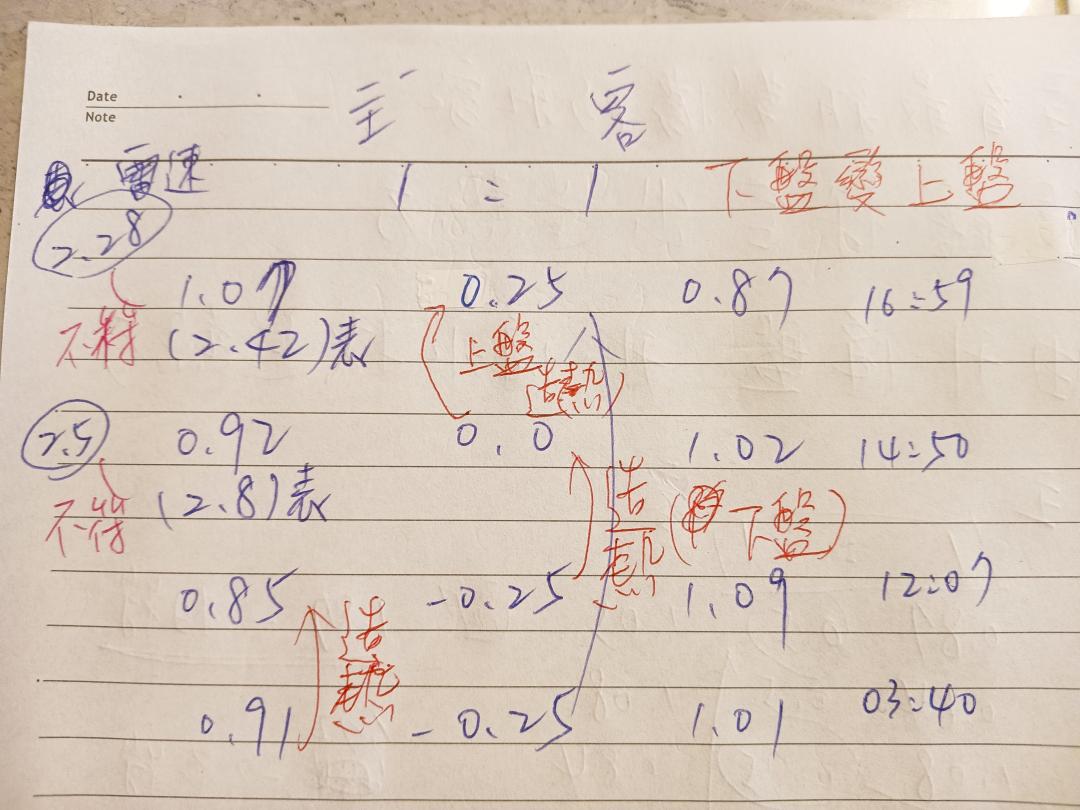 Date
Note
主 客
雷速 1 : 1 下盤變上盤
2.28
1.07 0.25 0.87 16:59
不符 (2.42)表 上盤
(造熱)
2.5 0.92 0.0 1.02 14:50
不符 (2.8)表 造熱(下盤)
0.85 -0.25 1.09 12:07
造熱
0.91 -0.25 1.01 03:40